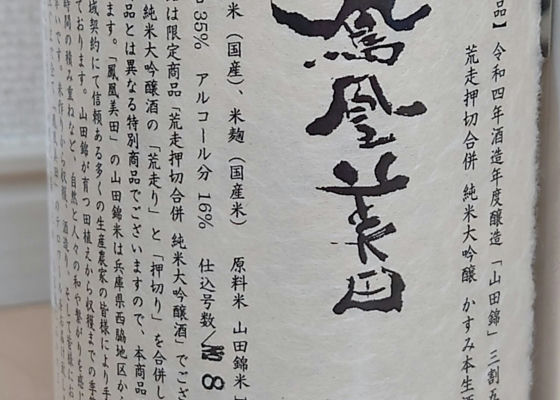 品】令和四年酒造年度醸造 「山田錦」三割五
荒走押切合併 純米大吟醸 かすみ本生酒
鳳凰美田
米（国産）、米麹（国産米） 原料米 山田錦米
35% アルコール分 16% 仕込号数 8
は限定商品「荒走押切合併 純米大吟醸酒」でござ
純米大吟醸酒の「荒走り」と「押切り」を合併し
品とは異なる特別商品でございますので、本商品
ます。「鳳凰美田」の山田錦米は兵庫県西脇地区か
域契約にて信頼ある多くの生産農家の皆様により手
ております。山田錦が育つ田植えから収穫までの季
時間の積み重ねなど、自然と人々の和や繋がりを感じ
から収穫、酒造り、そして皆様にお